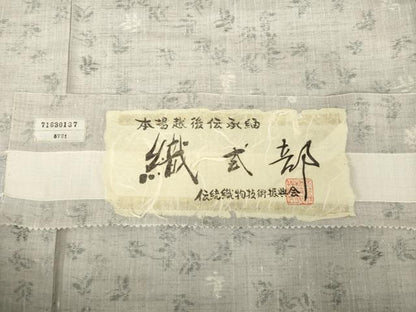 71630137
本場越後伝承紬
織式部
伝統織物技術振興会